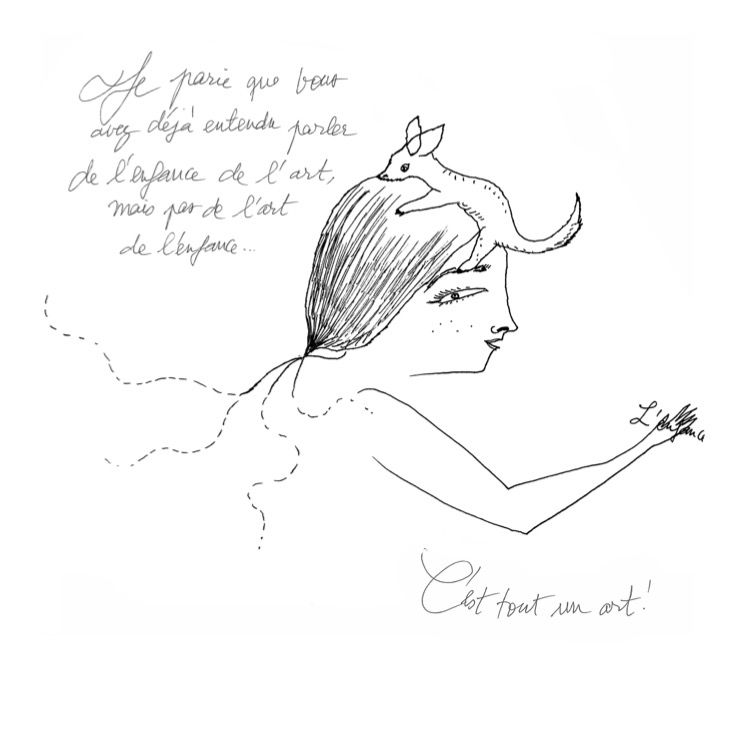 Je parie que vous
avez déjà entendu parler
de l'enfance de l'art,
mais pas de l'art
de l'enfance...
L'enfance
C'est tout un art!